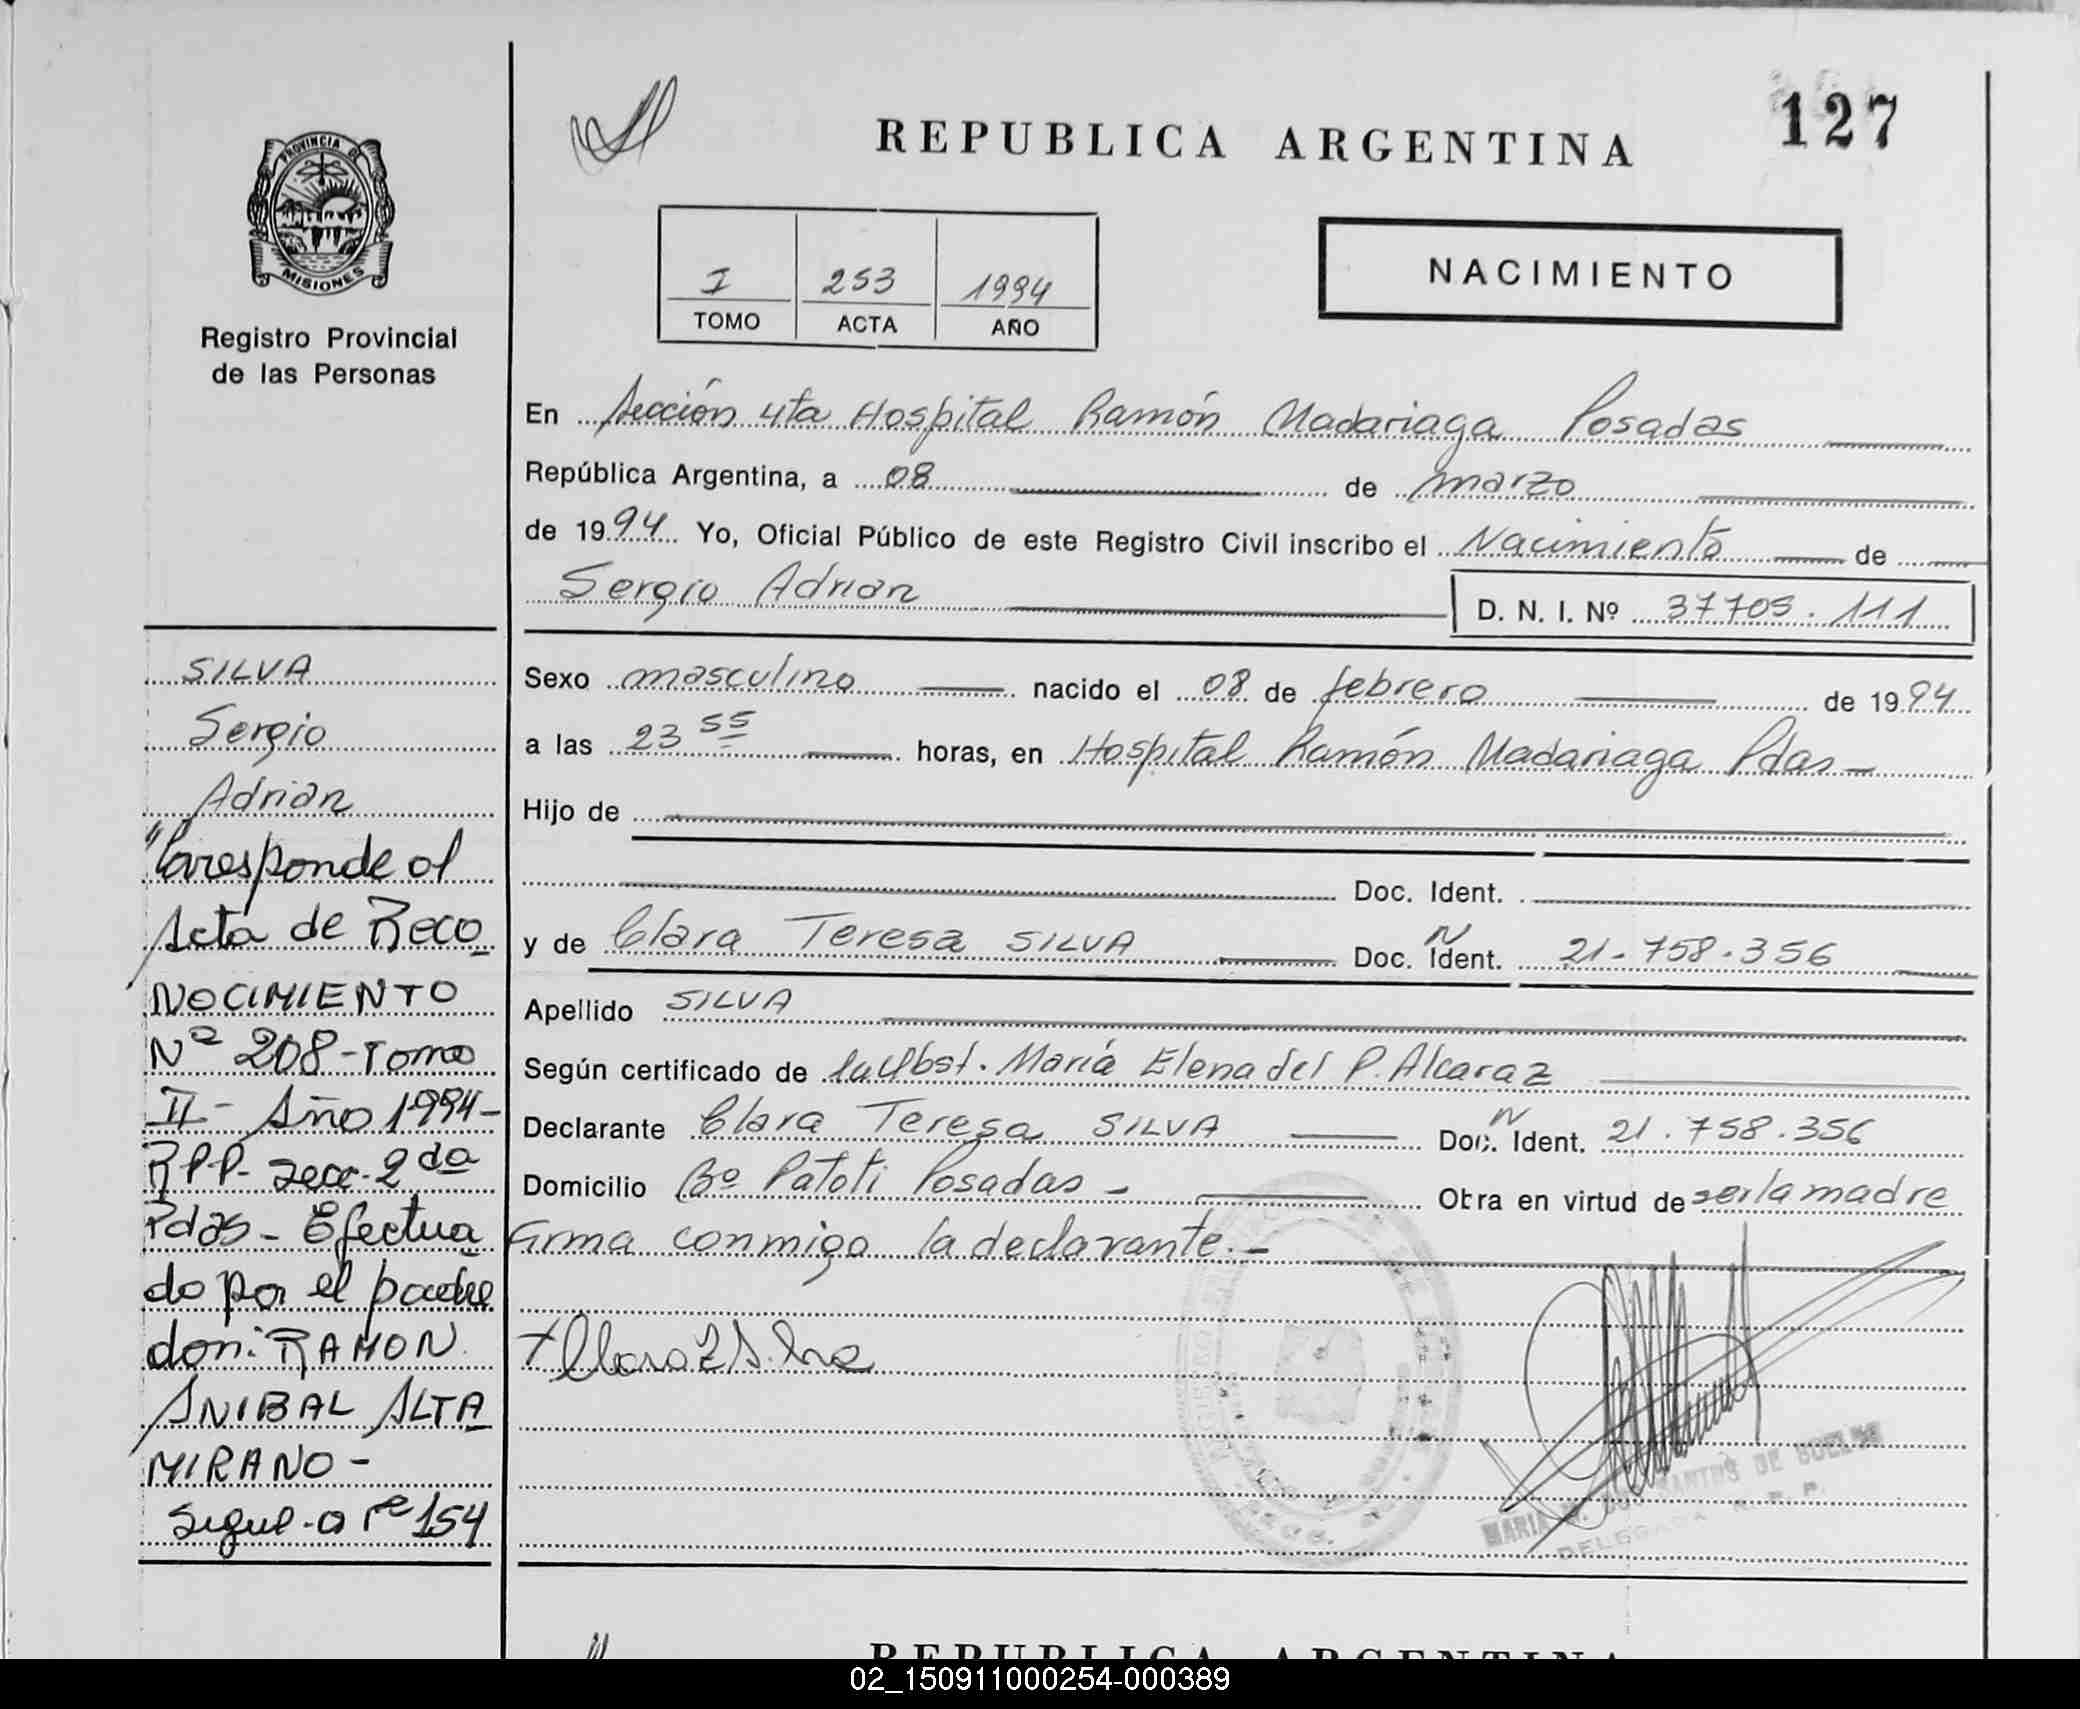 REPUBLICA ARGENTINA
127
PROVINCIA DE
MISIONES
Registro Provincial
de las Personas
I 253 1994
TOMO ACTA AÑO
NACIMIENTO
En Sección 4ta Hospital Ramón Madariaga Posadas
República Argentina, a 08 de marzo
de 1994 Yo, Oficial Público de este Registro Civil inscribo el Nacimiento de
Sergio Adrian D. N. I. Nº 37705.111
Sexo masculino nacido el 08 de febrero de 1994
a las 23 55 horas, en Hospital Ramón Madariaga Pdas -
Hijo de
Doc. Ident.
y de Clara Teresa SILVA Doc. N Ident. 21.758.356
Apellido SILVA
Según certificado de la Obst. María Elena del P. Alcaraz
Declarante Clara Teresa SILVA Doc. N Ident. 21.758.356
Domicilio Bº Patoti Posadas - Obra en virtud de ser la madre
Firma conmigo la declarante.-
SILVA
Sergio
Adrian
"Corresponde al
Acta de Reco
NOCIMIENTO
Nº 208-Tomo
II - Año 1994-
RPP- Secc. 2da
Pdas - Efectua
do por el padre
don: RAMON
ANIBAL ALTA
MIRANO -
Sigue a Fº 154
MARIA SANTOS DE
DELEGADA R. P. P.
REPUBLICA ARGENTINA
02_150911000254-000389